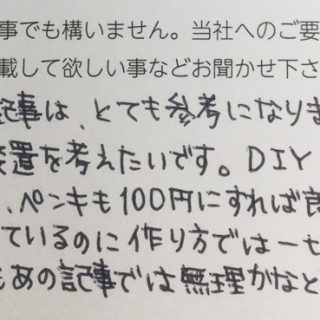 事でも構いません。当社へのご要
載して欲しい事などお聞かせ下さ
記事は、とても参考になりま
装置を考えたいです。DIY
、ペンキも100円にすれば良
ているのに作り方では一も
もあの記事では無理かなと